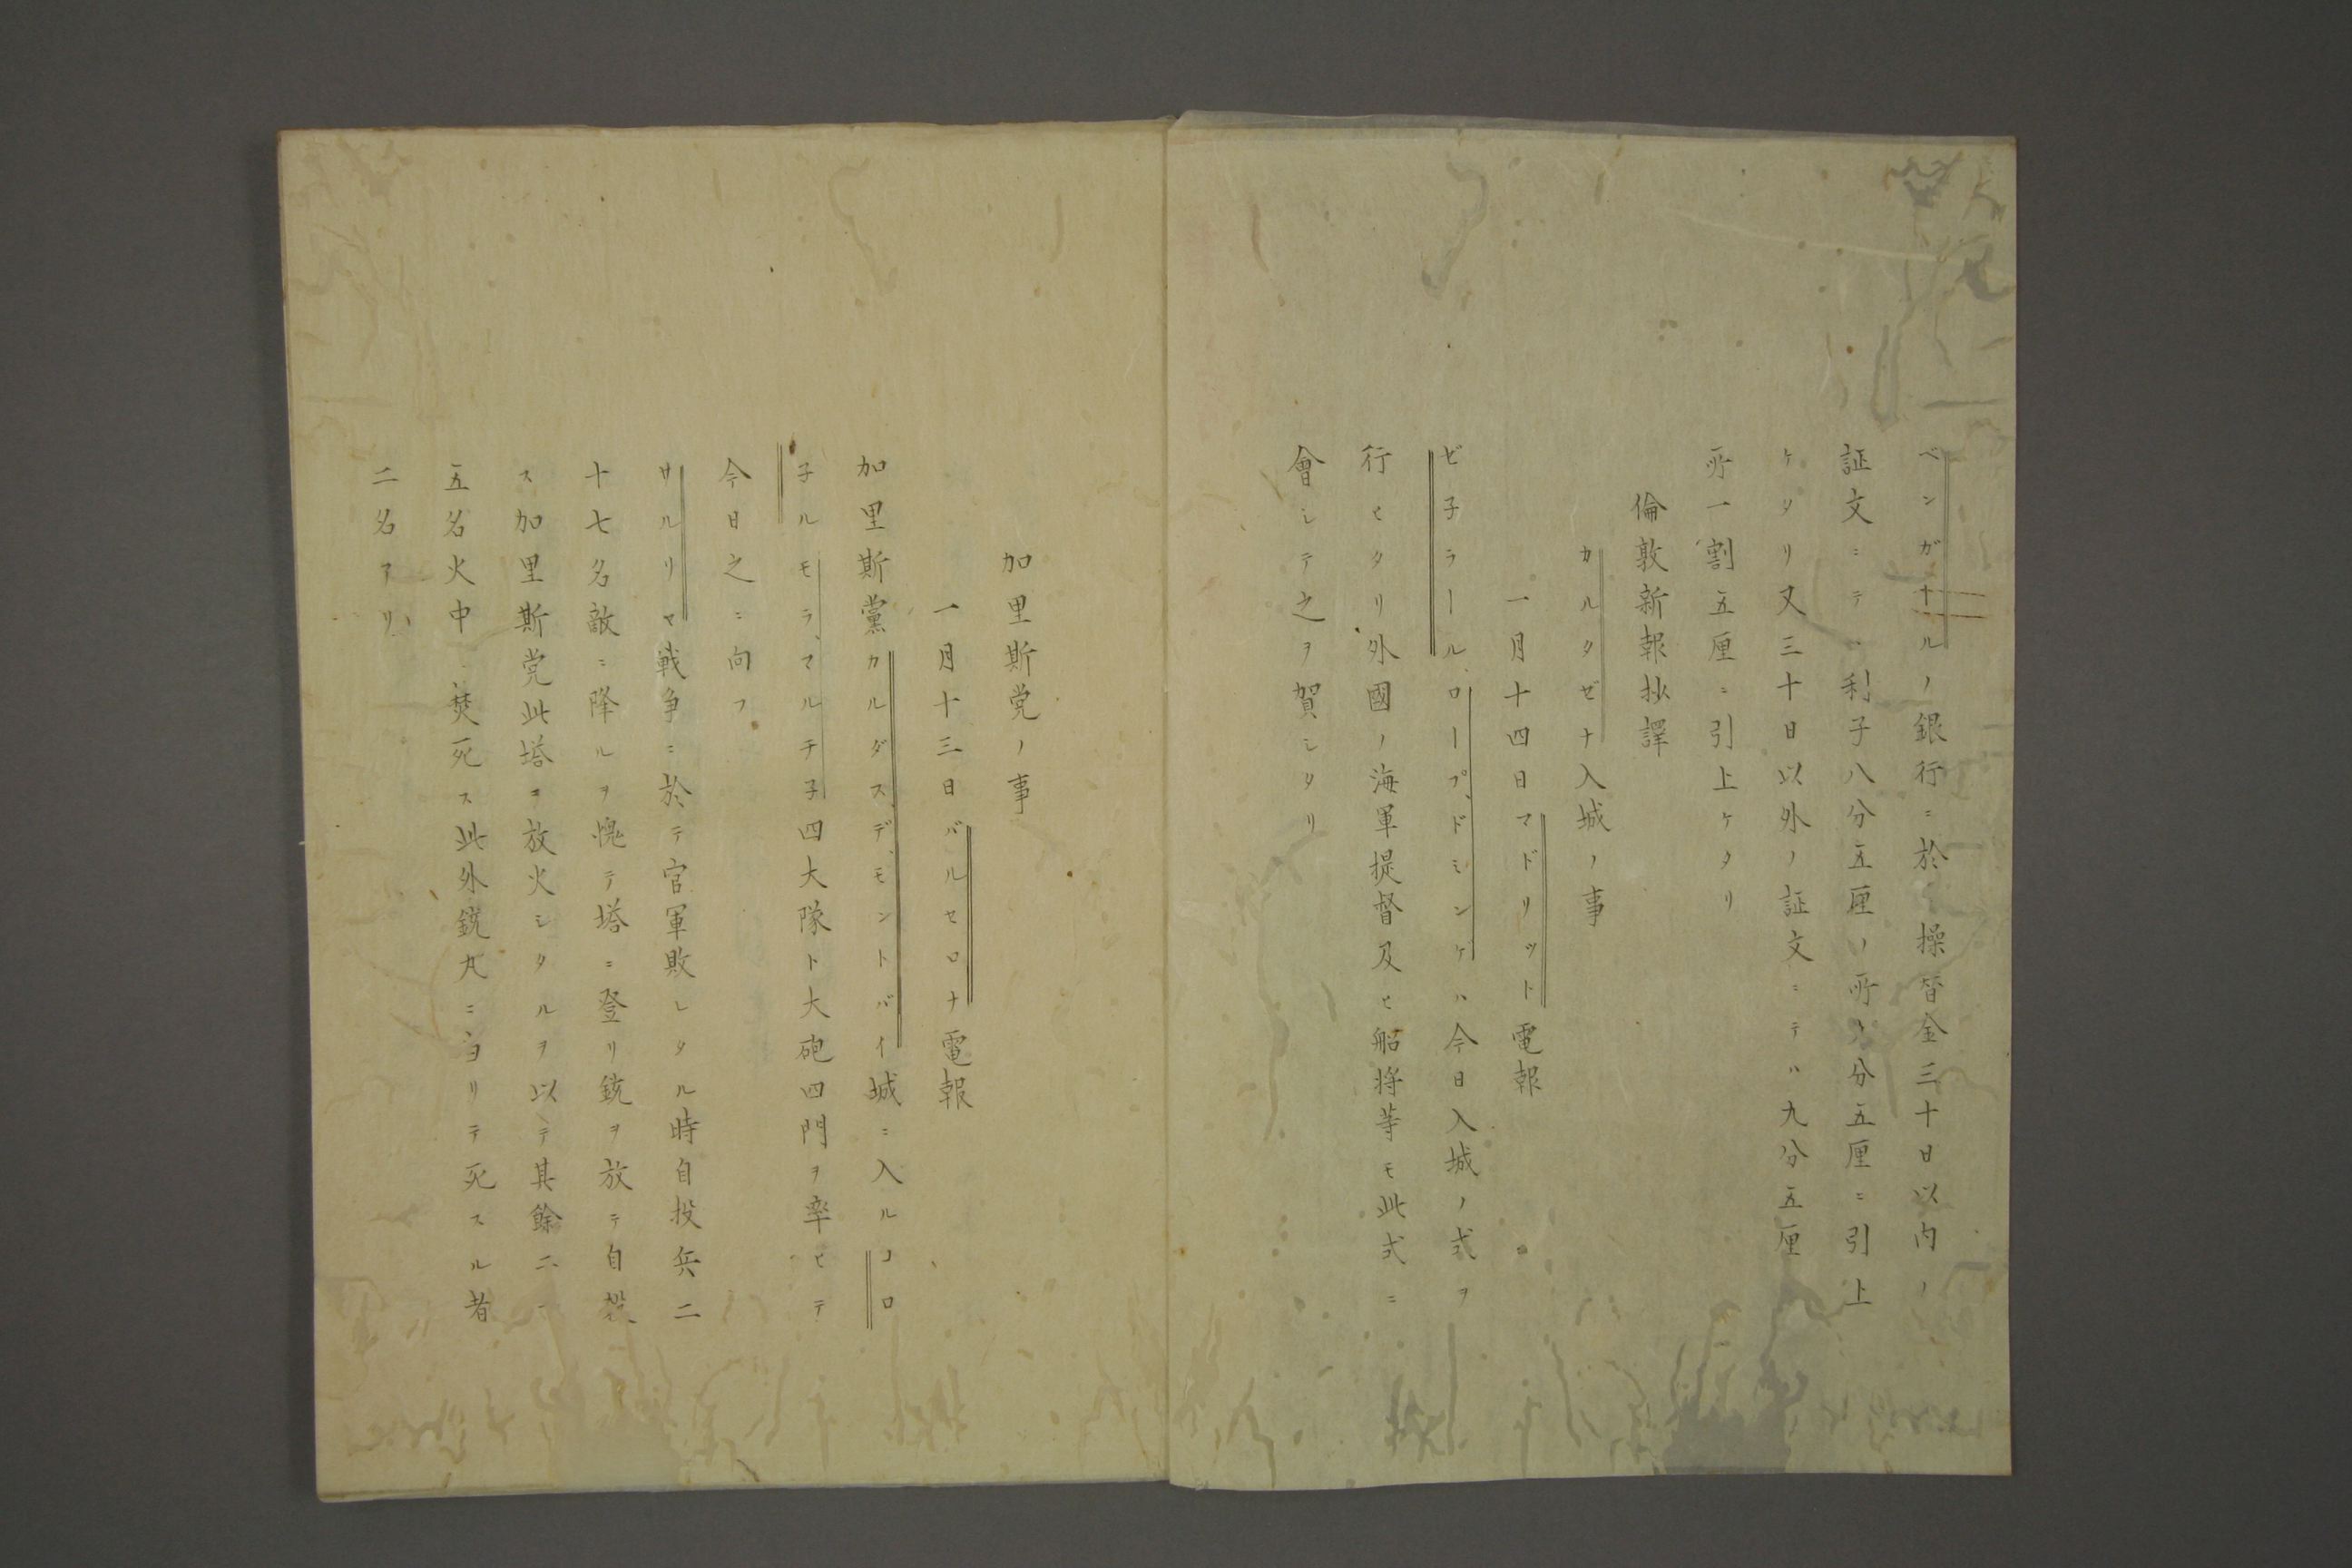 ベンガナルノ銀行ニ於テ操替金三十日以内ノ
証文ニテハ利子八分五厘ノ所九分五厘ニ引上
ケタリ又三十日以外ノ証文ニテハ九分五厘ノ
所一割五厘ニ引上ケタリ
倫敦新報抄譯
カルタゼナ入城ノ事
一月十四日マドリット電報
ゼ子ラール、ロープ、ドミンゲハ今日入城ノ式ヲ
行ヒタリ外國ノ海軍提督及ヒ船将等モ此式ニ
會シテ之ヲ賀シタリ
加里斯党ノ事
一月十三日バルセロナ電報
加里斯黨カルダス、デ、モントバイ城ニ入ルコロ
子ルモラ、マルチ子四大隊ト大砲四門ヲ率ヒテ
今日之ニ向フ
サルリマ戦争ニ於テ官軍敗レタル時自投兵二
十七名敵ニ降ルヲ愧テ塔ニ登リ銃ヲ放テ自投
ス加里斯党此塔ヲ放火シタルヲ以テ其餘二十
五名火中ニ焚死ス此外銃丸ニヨリテ死スル者
二名アリ